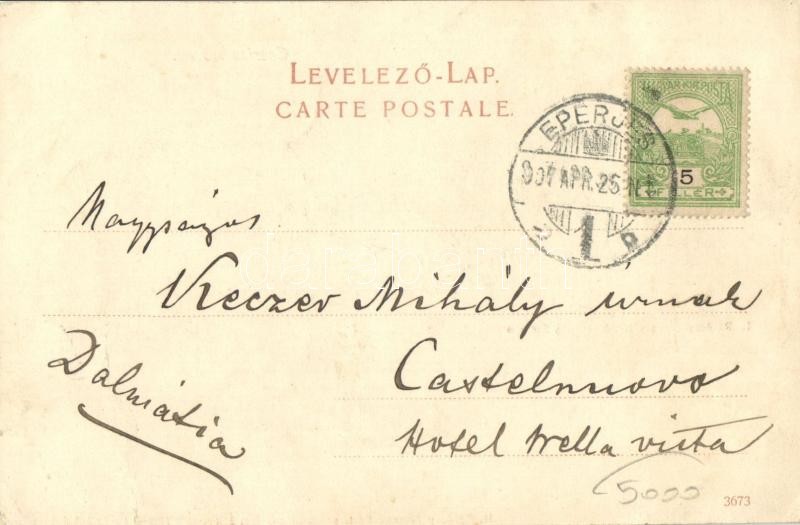 LEVELEZŐ-LAP.
CARTE POSTALE.
MAGYAR KIR. POSTA
5
FILLÉR
EPERJES
907 APR. 25
1
Nagyságos
Keczer Mihály úrnak
Dalmátia
Castelnuovo
Hotel bella vista
5000
3673